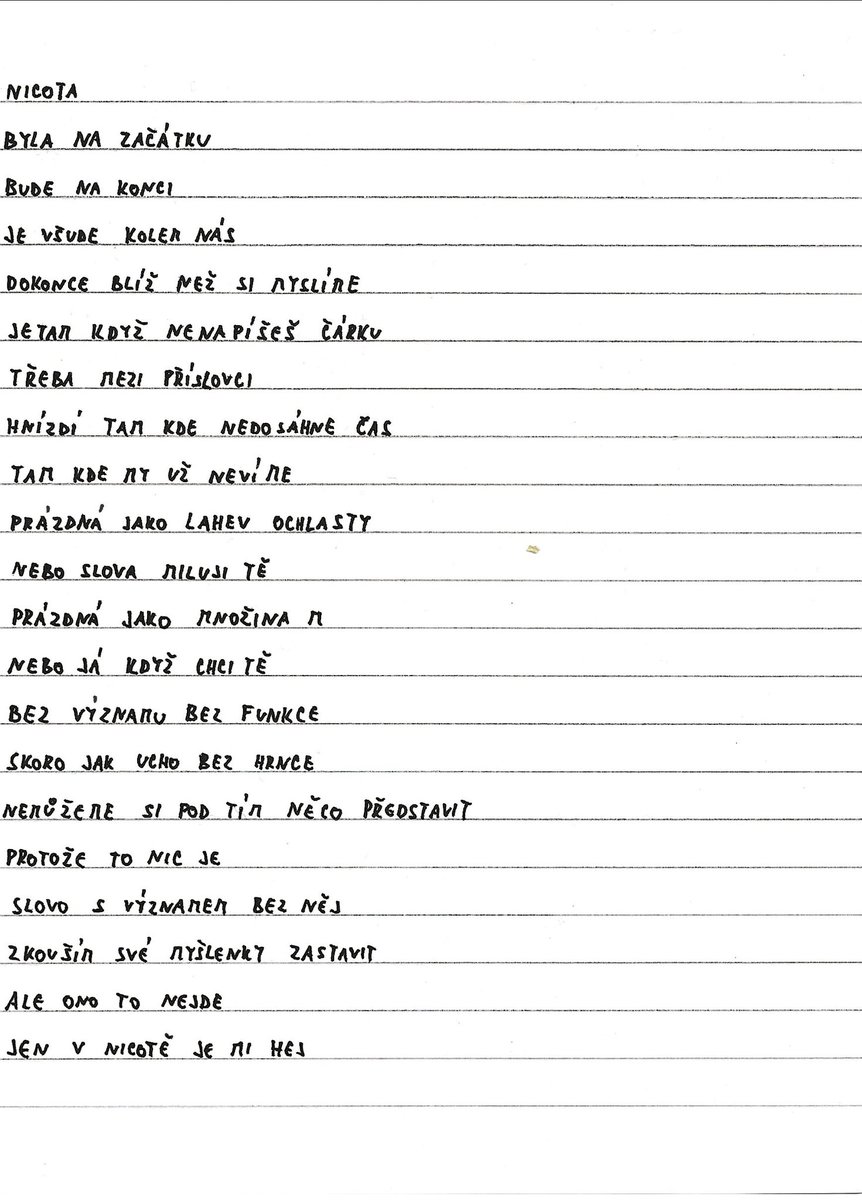 NICOTA
BYLA NA ZAČÁTKU
BUDE NA KONCI
JE VŠUDE KOLEM NÁS
DOKONCE BLÍŽ NEŽ SI MYSLÍME
JETAM KDYŽ NENAPÍŠEŠ ČÁRKU
TŘEBA MEZI PŘÍSLOVCI
HNÍZDÍ TAM KDE NEDOSÁHNE ČAS
TAM KDE MY UŽ NEVÍME
PRÁZDNÁ JAKO LAHEV OCHLASTY
NEBO SLOVA MILUJI TĚ
PRÁZDNÁ JAKO MNOŽINA M
NEBO JÁ KDYŽ CHCI TĚ
BEZ VÝZNAMU BEZ FUNKCE
SKORO JAK UCHO BEZ HRNCE
NEMŮŽEME SI POD TÍM NĚCO PŘEDSTAVIT
PROTOŽE TO NIC JE
SLOVO S VÝZNAMEM BEZ NĚJ
ZKOUŠÍM SVÉ MYŠLENKY ZASTAVIT
ALE ONO TO NEJDE
JEN V NICOTĚ JE MI HEJ